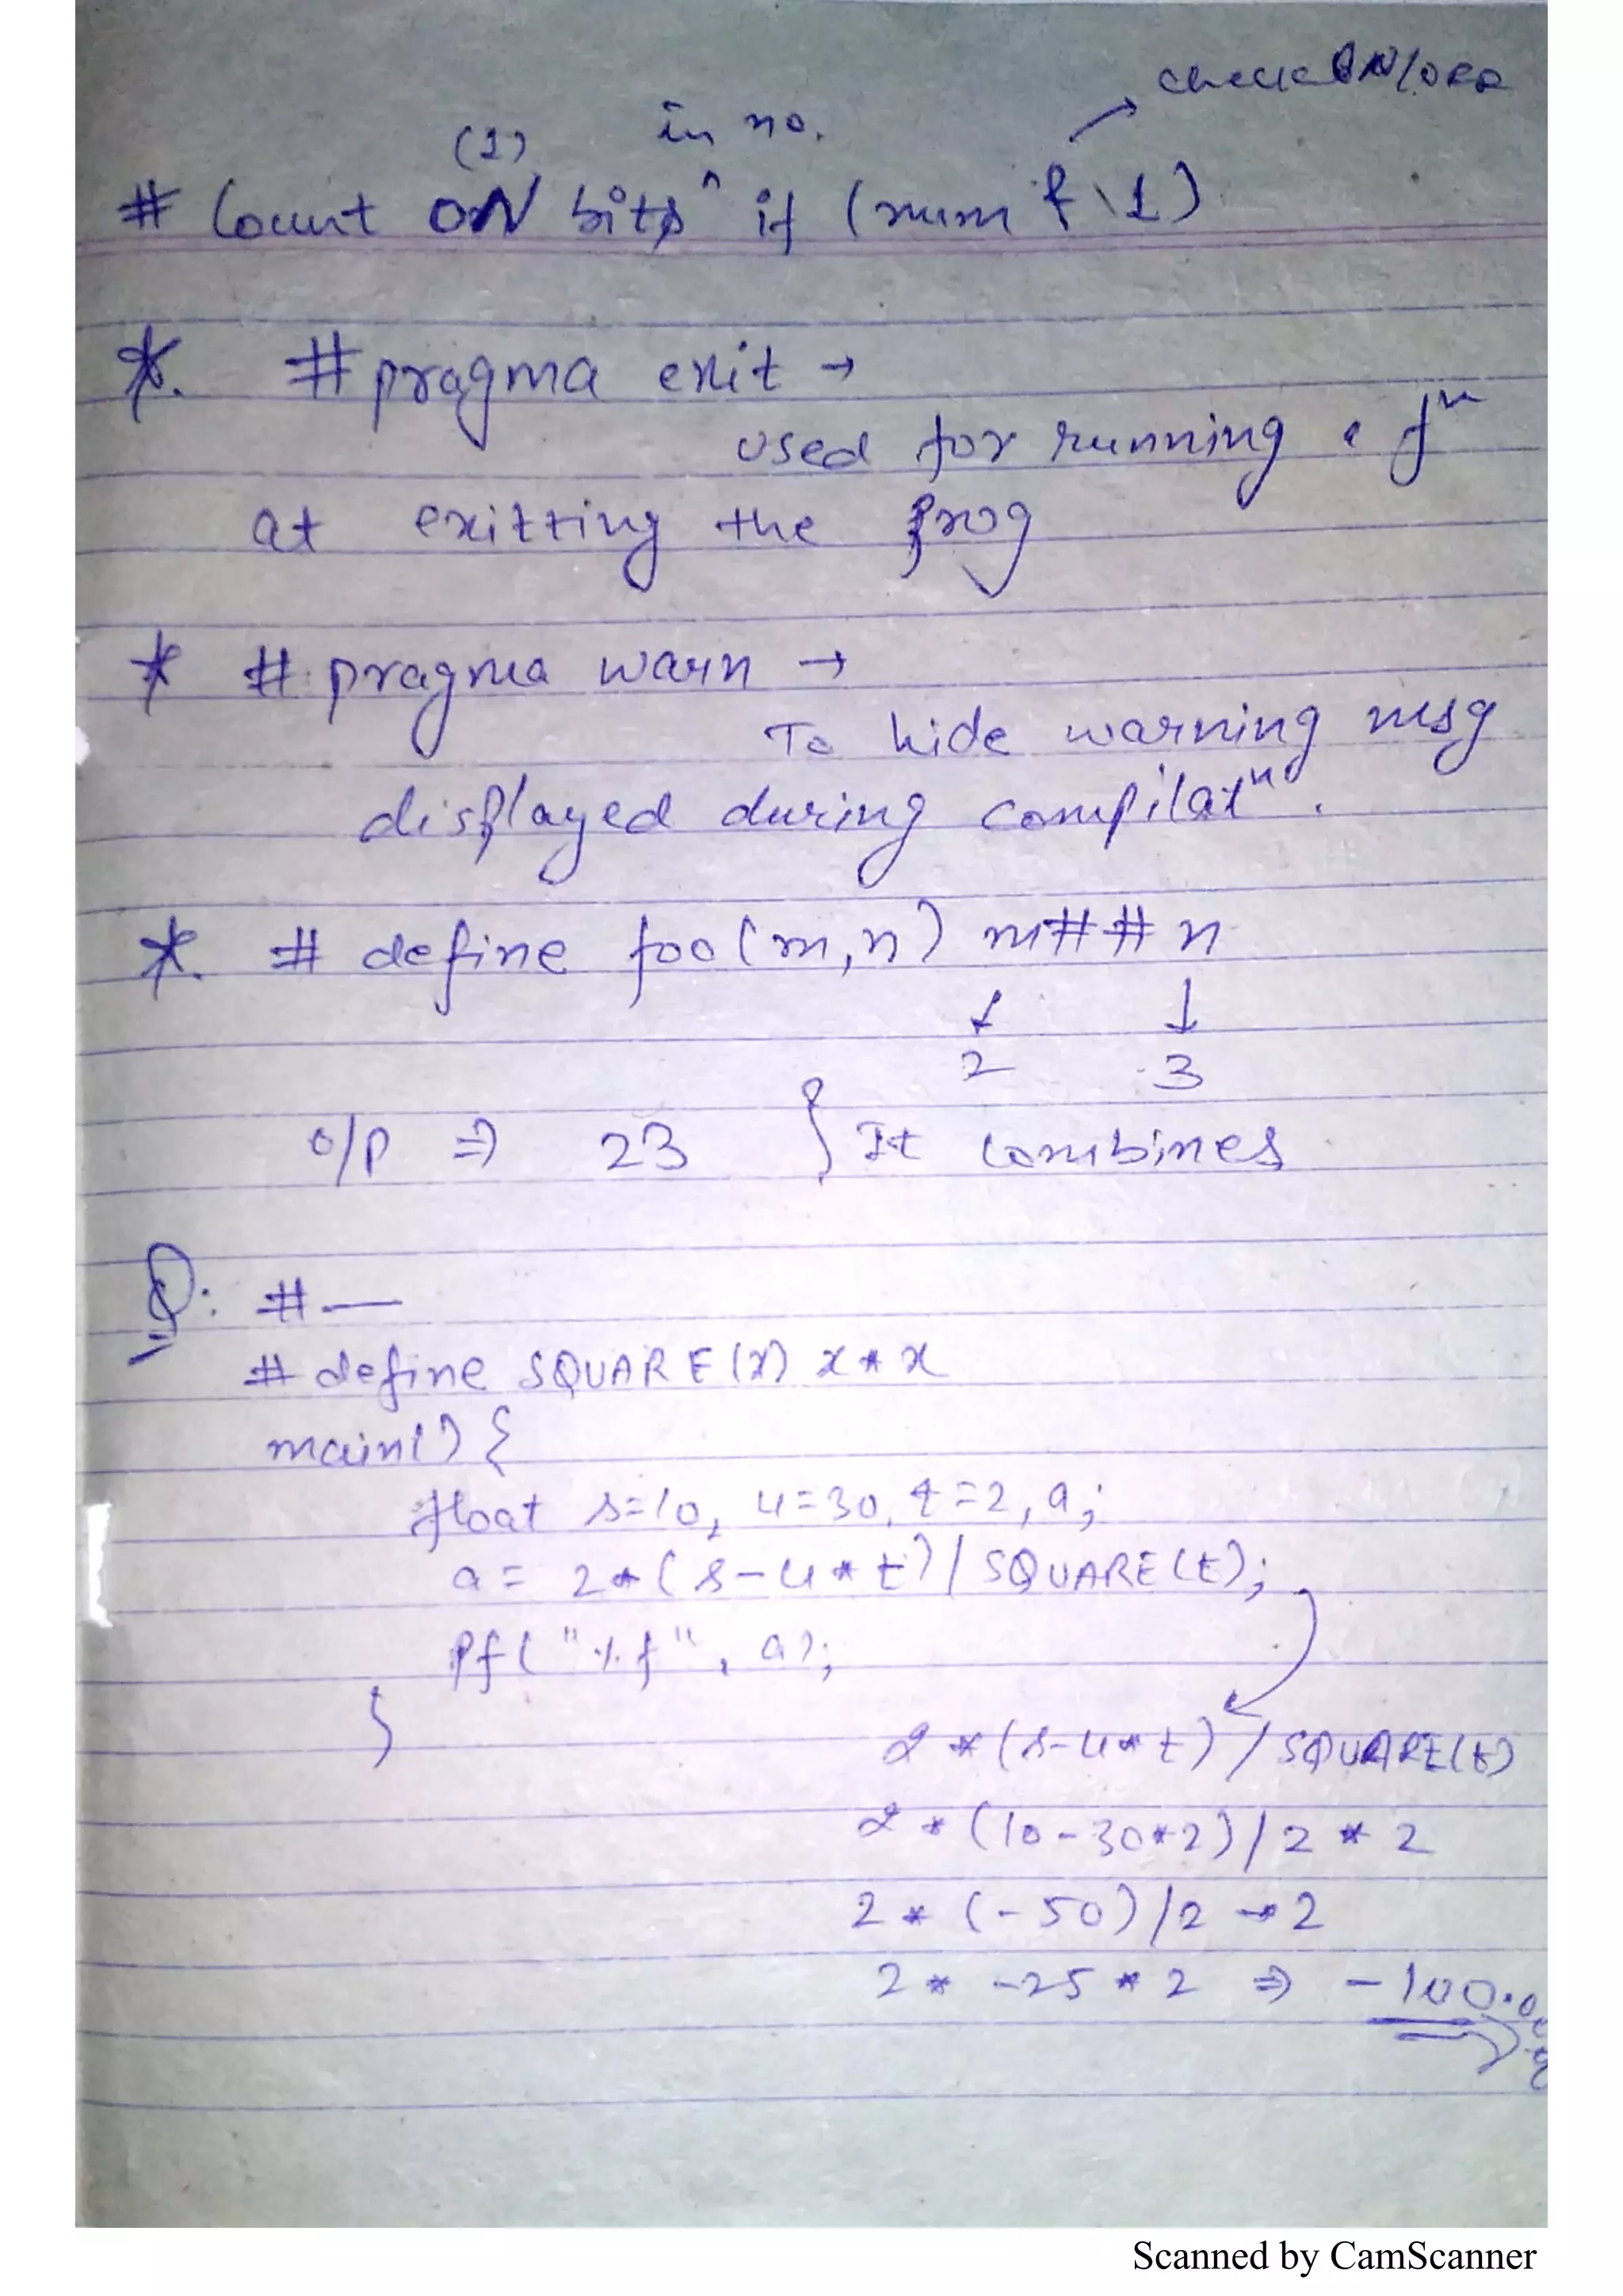 check ON/OFF
(1) in no.
# Count ON bits ^ if (num & 1)
*. #pragma exit →
used for running a fⁿ
at exitting the prog
* # pragma warn →
To hide warning msg
displayed during compilatⁿ.
*. # define foo(m,n) m## n
↓ ↓
2 3
O/P ⇒ 23 } It combines
Q: # —
# define SQUARE(x) x*x
main() {
float s=10, u=30, t=2, a;
a = 2*(s-u*t)/SQUARE(t);
Pf("%f", a);
}
2*(s-u*t)/SQUARE(t)
2*(10-30*2)/2*2
2*(-50)/2*2
2* -25*2 ⇒ -100.0
Scanned by CamScanner